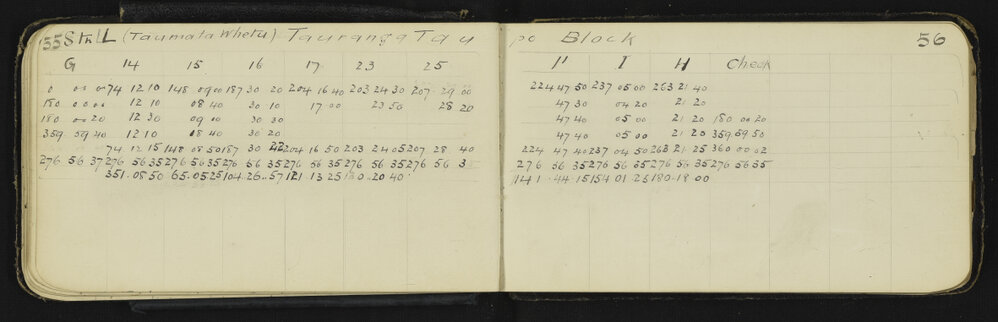 55 Stn L (Taumata Whetu) Tauranga Taupo Block 56
G 14 15 16 17 23 25 I H Check
0 00 00 74 12 10 148 09 00 187 30 20 204 16 40 203 24 30 207 29 00 224 47 50 237 05 00 263 21 40
180 00 00 12 10 08 40 30 10 17 00 23 50 28 20 47 30 04 20 21 20
180 00 20 12 30 09 00 30 30 47 40 05 00 21 20 180 00 20
359 59 40 12 10 08 40 30 20 47 40 05 00 21 20 359 59 50
74 12 15 148 08 50 187 30 22 204 16 50 203 24 05 207 28 40 224 47 40 237 04 50 263 21 25 360 00 02
276 56 37 276 56 35 276 56 35 276 56 35 276 56 35 276 56 35 276 56 3 276 56 35 276 56 35 276 56 35 276 56 35
351 08 50 65 05 25 104 26 57 121 13 25 20 40 141 44 15 154 01 25 180 18 00